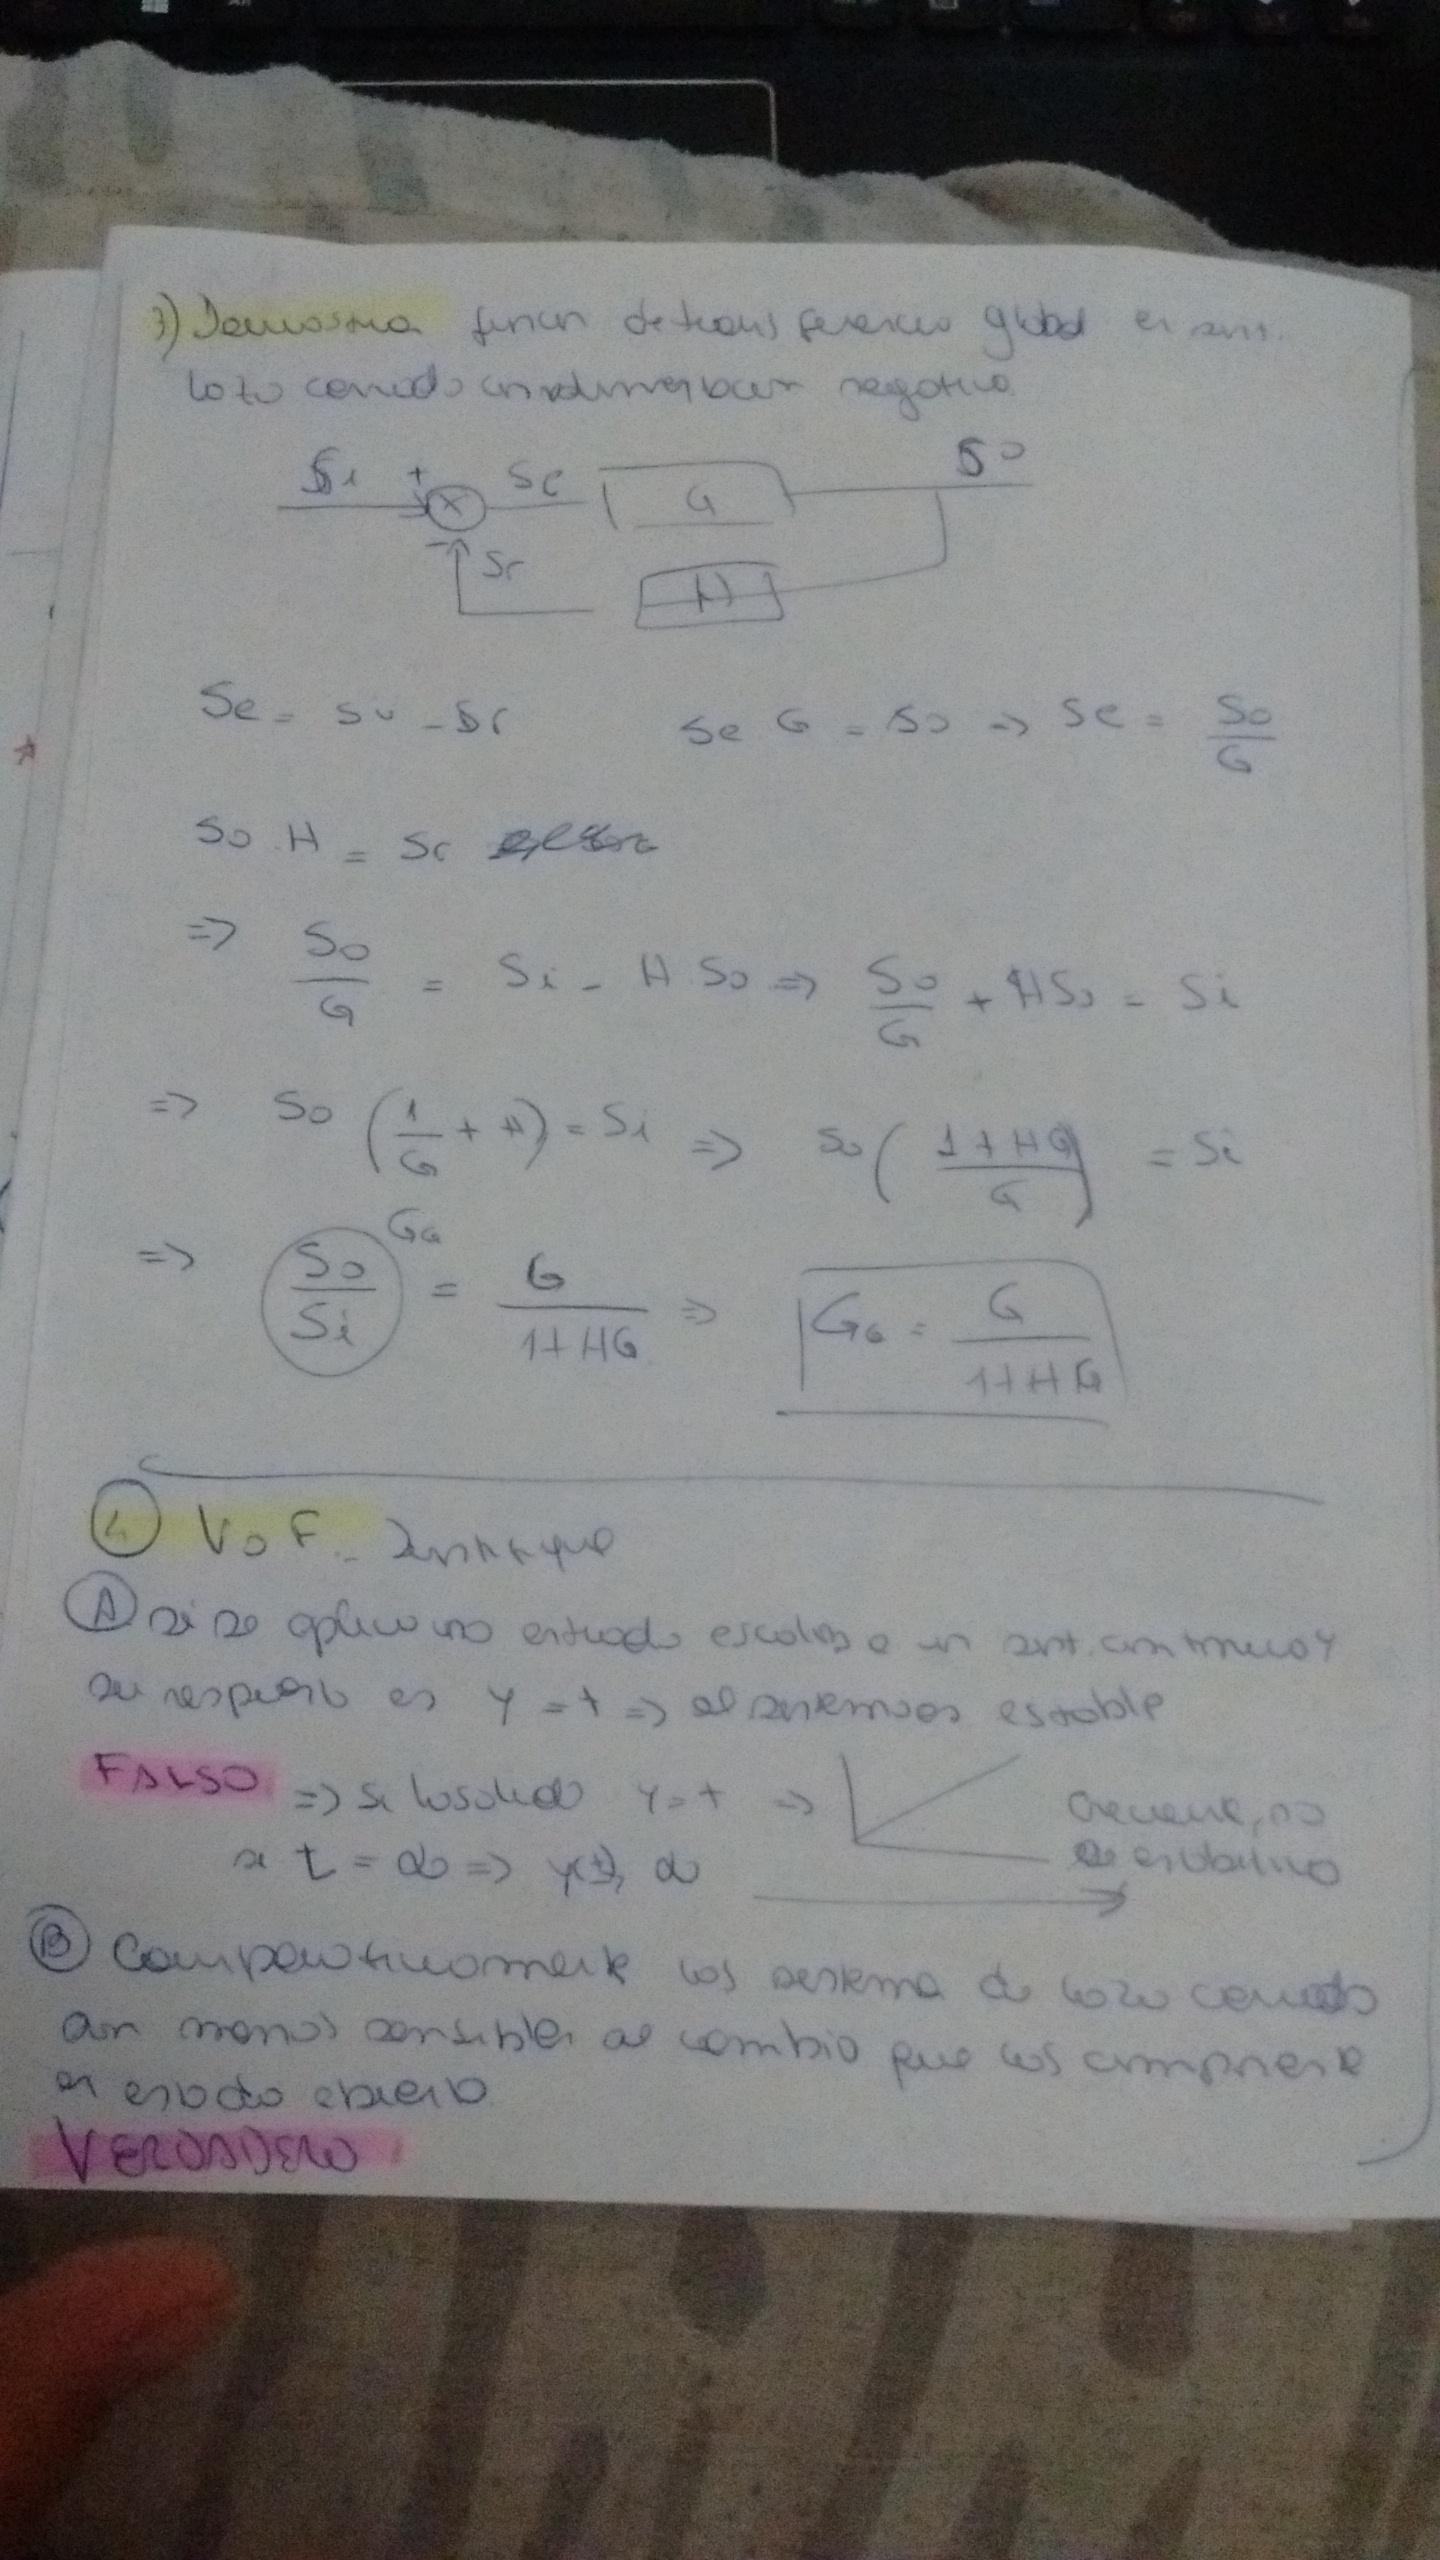 3) Demostrar funcion de transferencia global en sist.
lazo cerrado con retroalimentacion negativa.
Si + Se G So
- Sr H
Se = Si - Sr Se G = So => Se = So/G
So . H = Sr
=> So/G = Si - H So => So/G + HSo = Si
=> So (1/G + H) = Si => So (1 + HG / G) = Si
=> So/Si GG = G / 1 + HG => GG = G / 1 + HG
4 V o F.
A si se aplica una entrada escalon a un sist. continuo y
su respuesta es y = t => el sistema es estable
FALSO => si la salida y = t => creciente, no
si t = ∞ => y(t), ∞ se estabiliza
B Comparativamente los sistema de lazo cerrado
son menos sensibles al cambio que los
VERDADERO